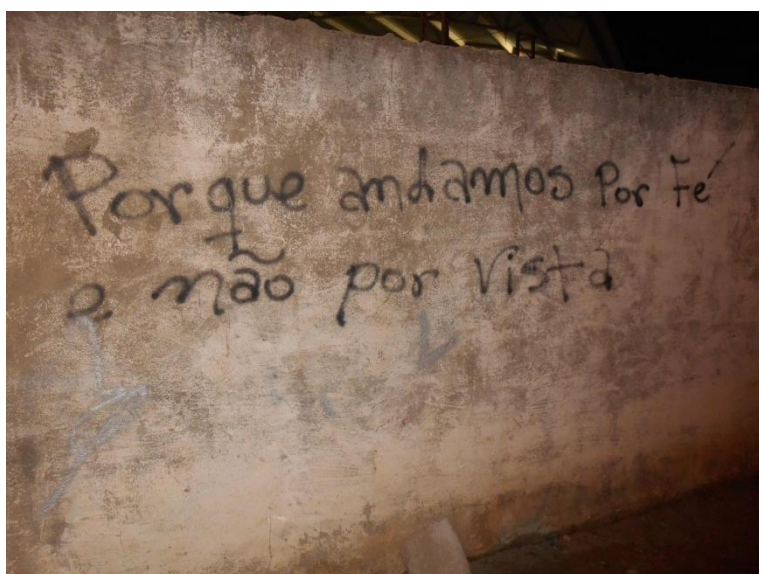 Porque andamos Por Fé
e não por vista